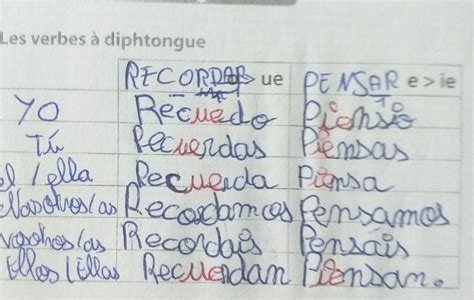 Les verbes à diphtongue
RECORDAR o > ue PENSAR e > ie
YO Recuedo Pienso
Tú Recuerdas Piensas
el / ella Recuerda Piensa
Nosotros/as Recordamos Pensamos
vosotros/as Recordais Pensáis
Ellos / Ellas Recuerdan Piensan.